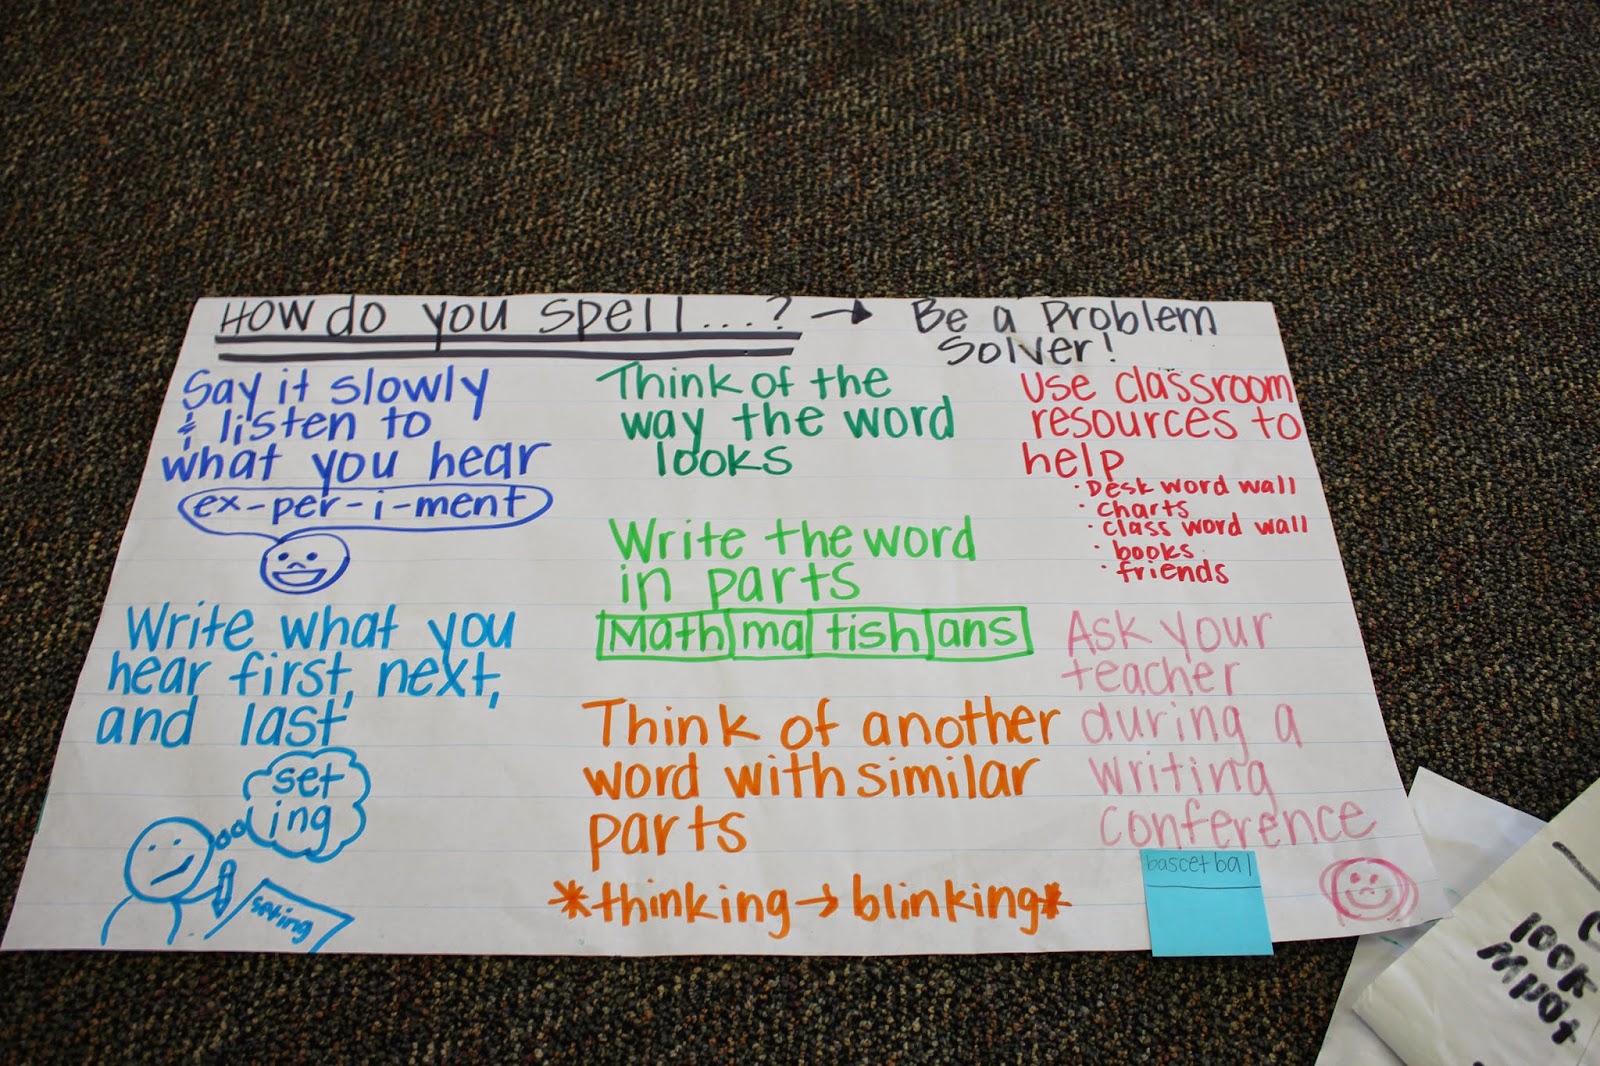 How do you spell...? → Be a Problem
Solver!
Say it slowly
& listen to
what you hear
ex-per-i-ment
Write what you
hear first, next,
and last
set
ing
seting
Think of the
way the word
looks
Write the word
in parts
Math ma tish ans
Think of another
word with similar
parts
*thinking → blinking*
Use classroom
resources to
help
· Desk word wall
· charts
· class word wall
· books
· friends
Ask your
teacher
during a
writing
conference
bascetbal
look